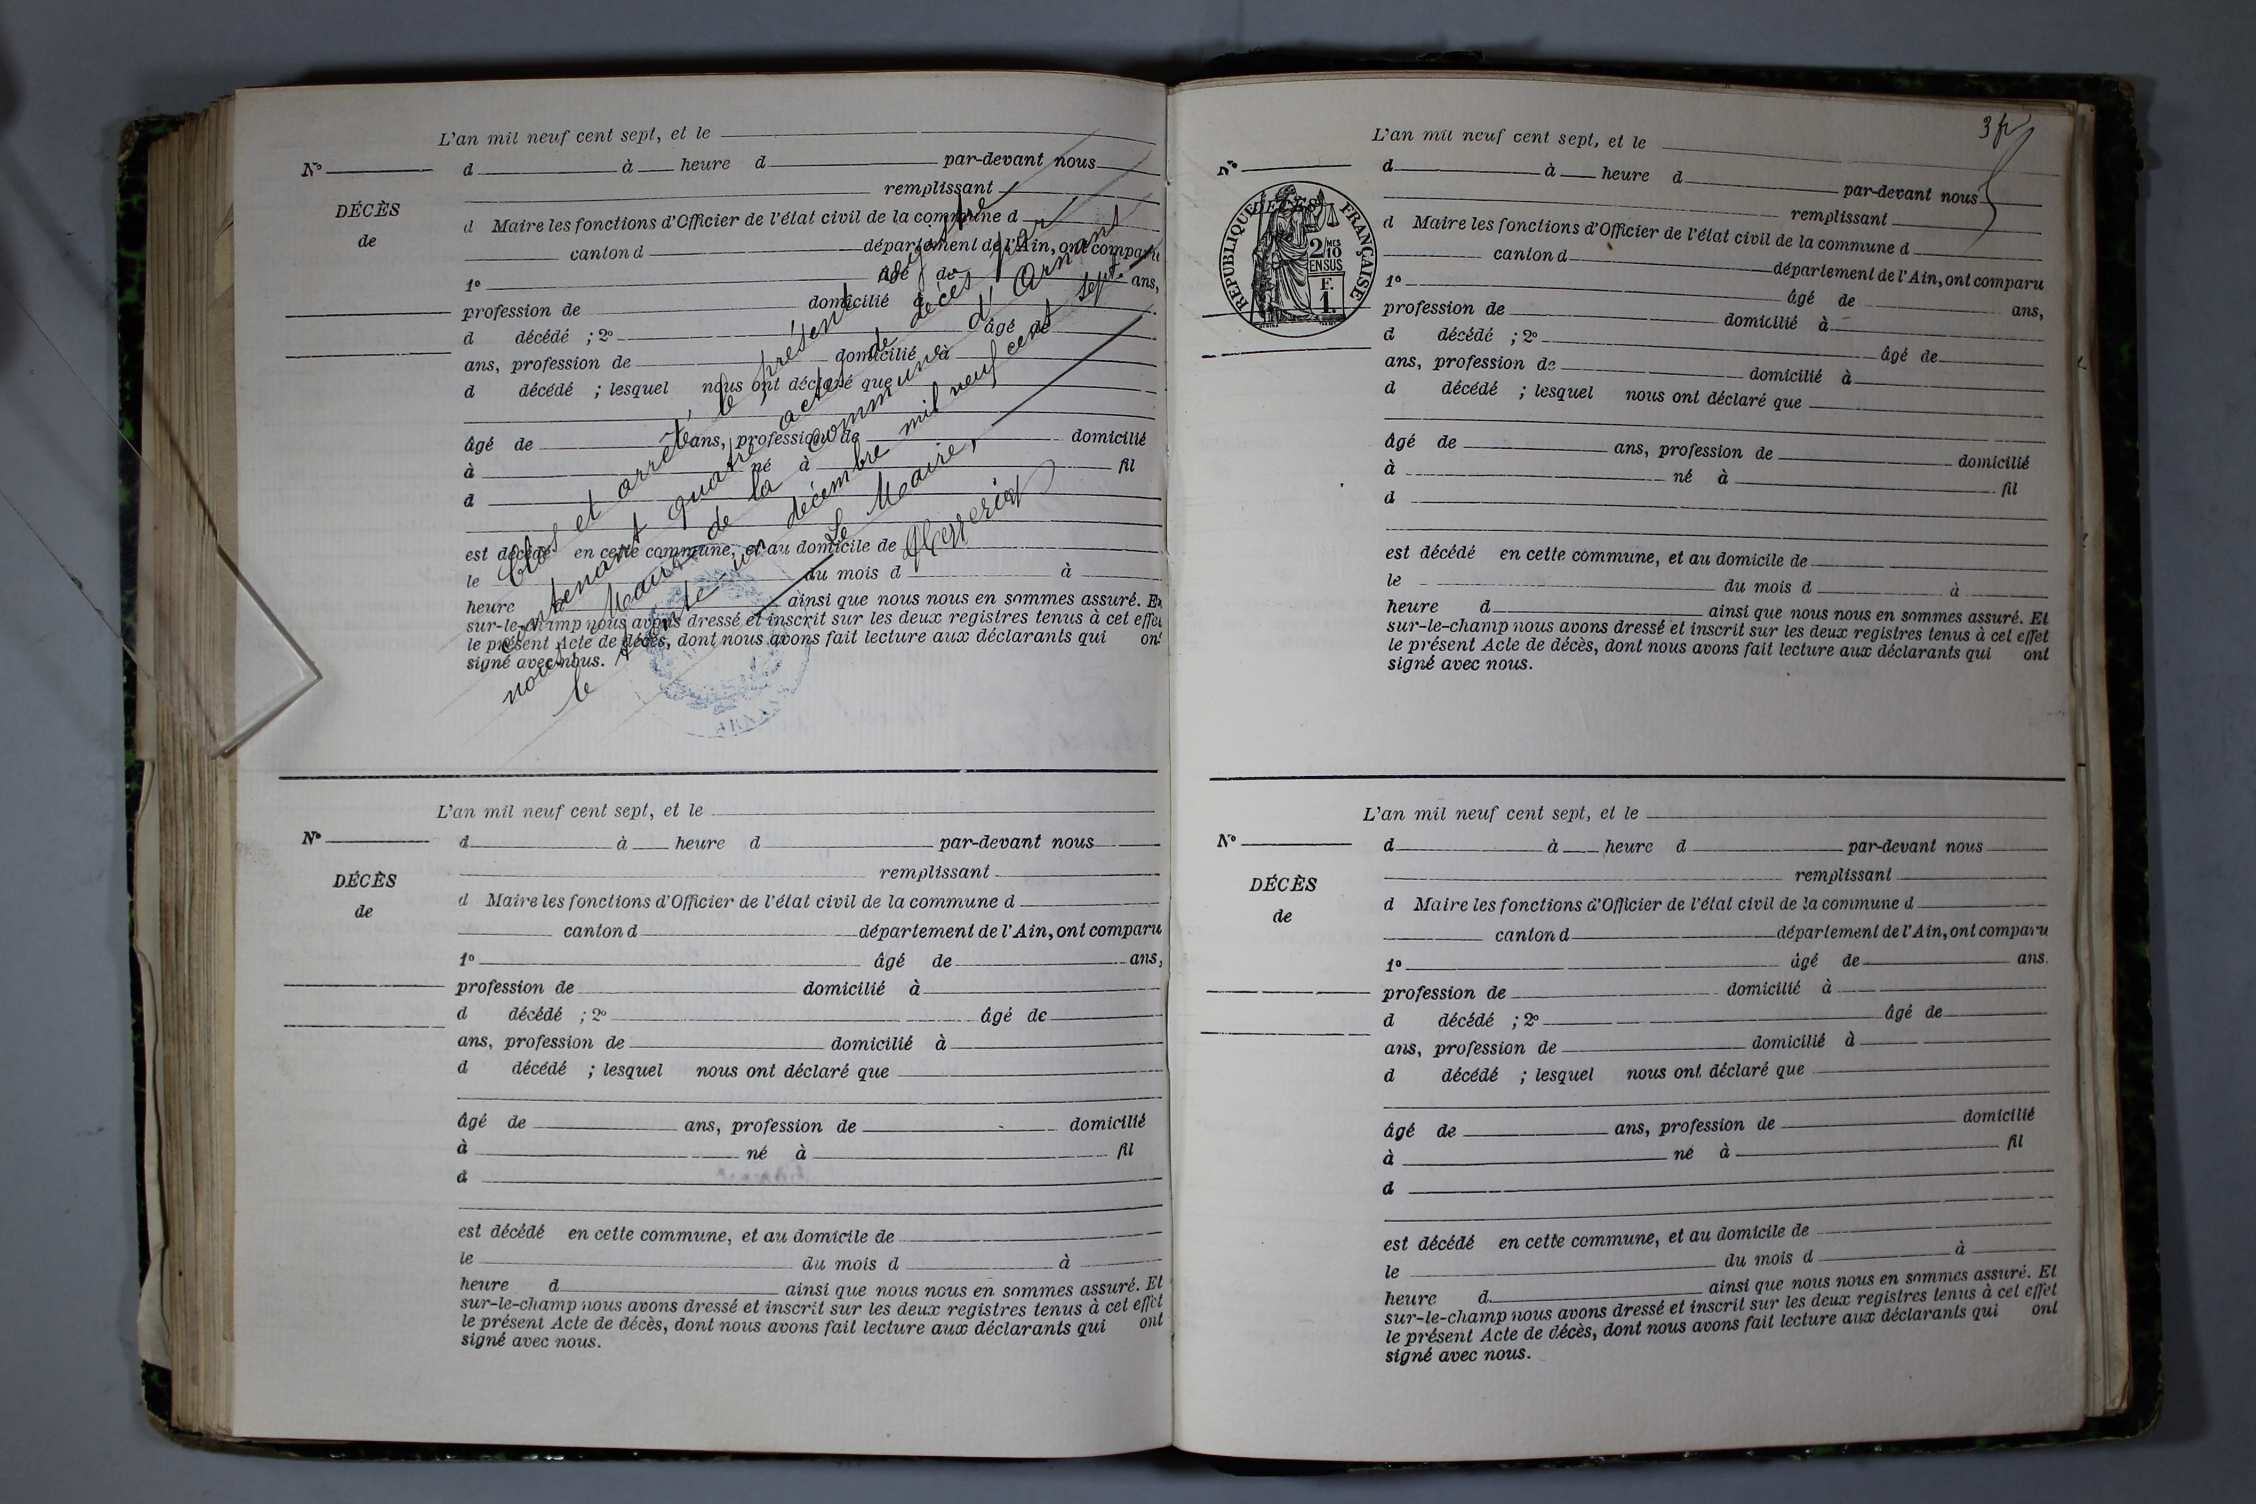 L'an mil neuf cent sept, et le
N° d à heure d par-devant nous
remplissant
DÉCÈS
de
d Maire les fonctions d'Officier de l'état civil de la commune d
canton d département de l'Ain, ont comparu
1° âgé de ans,
profession de domicilié à
d décédé ; 2° âgé de
ans, profession de domicilié à
d décédé ; lesquel nous ont déclaré que
âgé de ans, profession de domicilié
à né à fil
d
est décédé en cette commune, et au domicile de
le du mois d à
heure d ainsi que nous nous en sommes assuré. Et
sur-le-champ nous avons dressé et inscrit sur les deux registres tenus à cet effet
le présent Acte de décès, dont nous avons fait lecture aux déclarants qui ont
signé avec nous.
Clos et arrêté, le présent registre
contenant quatre actes de décès par
nous Maire de la commune d'Arnans
le trente un décembre mil neuf cent sept.
Le Maire,
L'an mil neuf cent sept, et le
N° d à heure d par-devant nous
remplissant
DÉCÈS
de
d Maire les fonctions d'Officier de l'état civil de la commune d
canton d département de l'Ain, ont comparu
1° âgé de ans,
profession de domicilié à
d décédé ; 2° âgé de
ans, profession de domicilié à
d décédé ; lesquel nous ont déclaré que
âgé de ans, profession de domicilié
à né à fil
d
est décédé en cette commune, et au domicile de
le du mois d à
heure d ainsi que nous nous en sommes assuré. Et
sur-le-champ nous avons dressé et inscrit sur les deux registres tenus à cet effet
le présent Acte de décès, dont nous avons fait lecture aux déclarants qui ont
signé avec nous.
3 fr
L'an mil neuf cent sept, et le
N° d à heure d par-devant nous
remplissant
DÉCÈS
RÉPUBLIQUE FRANÇAISE
2/10 MES
EN SUS
F.
1.
d Maire les fonctions d'Officier de l'état civil de la commune d
canton d département de l'Ain, ont comparu
1° âgé de ans,
profession de domicilié à
d décédé ; 2° âgé de
ans, profession de domicilié à
d décédé ; lesquel nous ont déclaré que
âgé de ans, profession de domicilié
à né à fil
d
est décédé en cette commune, et au domicile de
le du mois d à
heure d ainsi que nous nous en sommes assuré. Et
sur-le-champ nous avons dressé et inscrit sur les deux registres tenus à cet effet
le présent Acte de décès, dont nous avons fait lecture aux déclarants qui ont
signé avec nous.
L'an mil neuf cent sept, et le
N° d à heure d par-devant nous
remplissant
DÉCÈS
de
d Maire les fonctions d'Officier de l'état civil de la commune d
canton d département de l'Ain, ont comparu
1° âgé de ans.
profession de domicilié à
d décédé ; 2° âgé de
ans, profession de domicilié à
d décédé ; lesquel nous ont déclaré que
âgé de ans, profession de domicilié
à né à fil
d
est décédé en cette commune, et au domicile de
le du mois d à
heure d ainsi que nous nous en sommes assuré. Et
sur-le-champ nous avons dressé et inscrit sur les deux registres tenus à cet effet
le présent Acte de décès, dont nous avons fait lecture aux déclarants qui ont
signé avec nous.